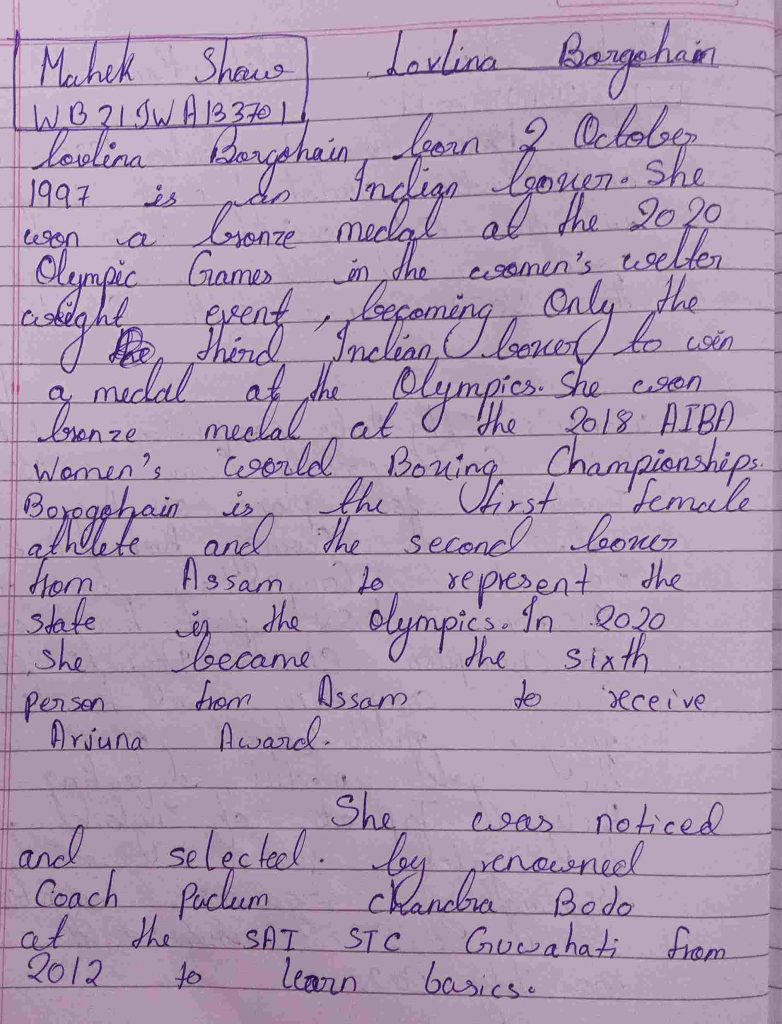 Mahek Shaw
WB21SWA133701
Lovlina Borgohain
lovlina Borgohain, born 2 October
1997 is an Indian boxer. She
won a bronze medal at the 2020
Olympic Games in the women's welter
weight event, becoming Only the
third Indian boxer to win
a medal at the Olympics. She won
bronze medal at the 2018 AIBA
Women's world Boxing Championships.
Borogohain is the first female
athlete and the second boxer
from Assam to represent the
state in the olympics. In 2020
she became the sixth
person from Assam to receive
Arjuna Award.
She was noticed
and selected. by renowned
Coach Padum Chandra Bodo
at the SAI STC Guwahati from
2012 to learn basics.